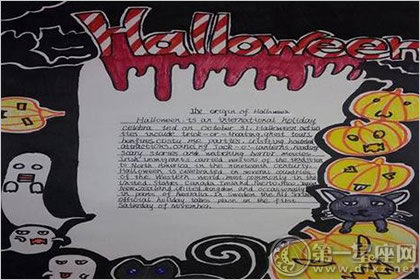 Halloween
The origin of Halloween
Halloween is an international holiday
celebrated on October 31. Halloween activi
ties include trick-or-treating, ghost tours
bonfires, costume parties, visiting haunted
attractions, carving Jack-o'-lanterns, reading
scary stories and watching horror movies.
Irish immigrants carried versions of the tradition
to North America in the nineteenth century.
Halloween is celebrated in several countries
of the Western world most commonly in the
United States, Canada, Ireland, Puerto Rico, Japan
New Zealand, United Kingdom and occasionally
in parts of Australia. In Sweden the All Saints
official holiday takes place in the first
Saturday of November.
第一星座网
www.d1xz.net